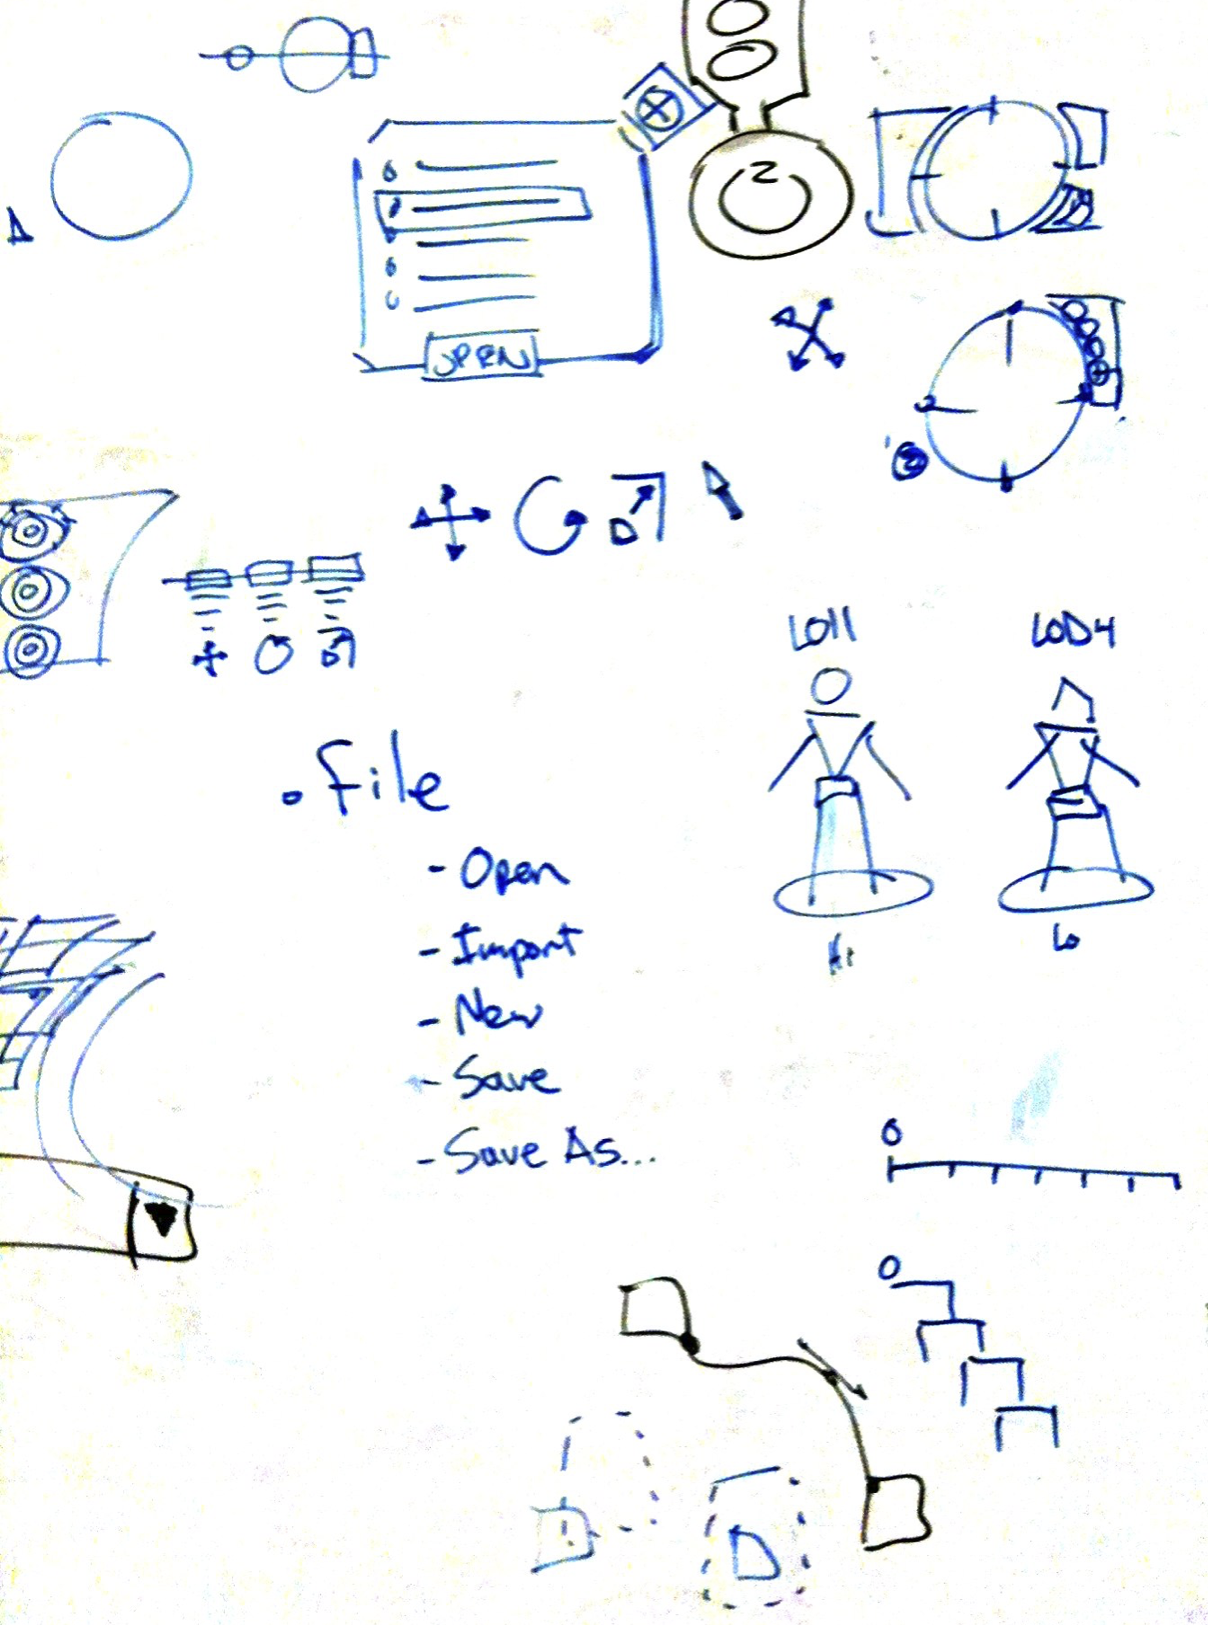 2
OPEN
2
LOD4
• File
- Open
- Import
- New
- Save
- Save As...
Hi
Lo
0
0